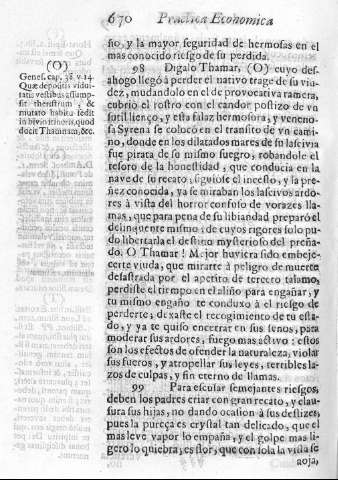 670 Practica Economica
sio, y la mayor seguridad de hermosas en el
mas conocido riesgo de su perdida.
98 Digalo Thamar, (O) cuyo des-
ahogo llegó à perder el nativo trage de su viu-
dez, mudandolo en el de provocativa ramera,
cubriò el rostro con el candor postizo de un
sutil lienço, y esta falaz hermosura, y veneno-
sa Syrena se colocò en el transito de un cami-
no, donde en los dilatados mares de su lascivia
fue pirata de su mismo suegro, robandole el
tesoro de la honestidad, que conducia en la
nave de su recato; siguiose el incesto, y la pre-
ñez conocida, ya se miraban los lascivos ardo-
res à vista del horror confuso de vorazes lla-
mas, que para pena de su libiandad preparó el
delinquente mismo; de cuyos rigores solo pu-
do libertarla el destino mysterioso del preña-
do. O Thamar! Mejor huviera sido embeje-
certe viuda, que mirarte à peligro de muerte
desastrada por el apetito de tercero talamo,
perdiste el tiempo en el aliño para engañar, y
tu mismo engaño te conduxo à el riesgo de
perderte; dexaste el recogimiento de tu esta-
do, y ya te quiso encerrar en sus senos, para
moderar sus ardores, fuego mas activo: estos
son los efectos de ofender la naturaleza, violar
sus fueros, y atropellar sus leyes, terribles la-
zos de culpas, y sin eterno de llamas.
99 Para escusar semejantes riesgos,
deben los padres criar con gran recato, y clau-
sura sus hijas, no dando ocasion à sus deslizes,
pues la pureça es crystal tan delicado, que el
mas leve vapor lo empaña, y el golpe mas li-
gero lo quiebra; es flor, que con sola la vista se
aoja,
(O)
Genes. cap. 38. v. 14
Quæ depositis vidui-
tatis vestibus assump-
sit theristrum, &
mutato habitu sedit
in bivio itineris, quod
docit Thamnam, &c.